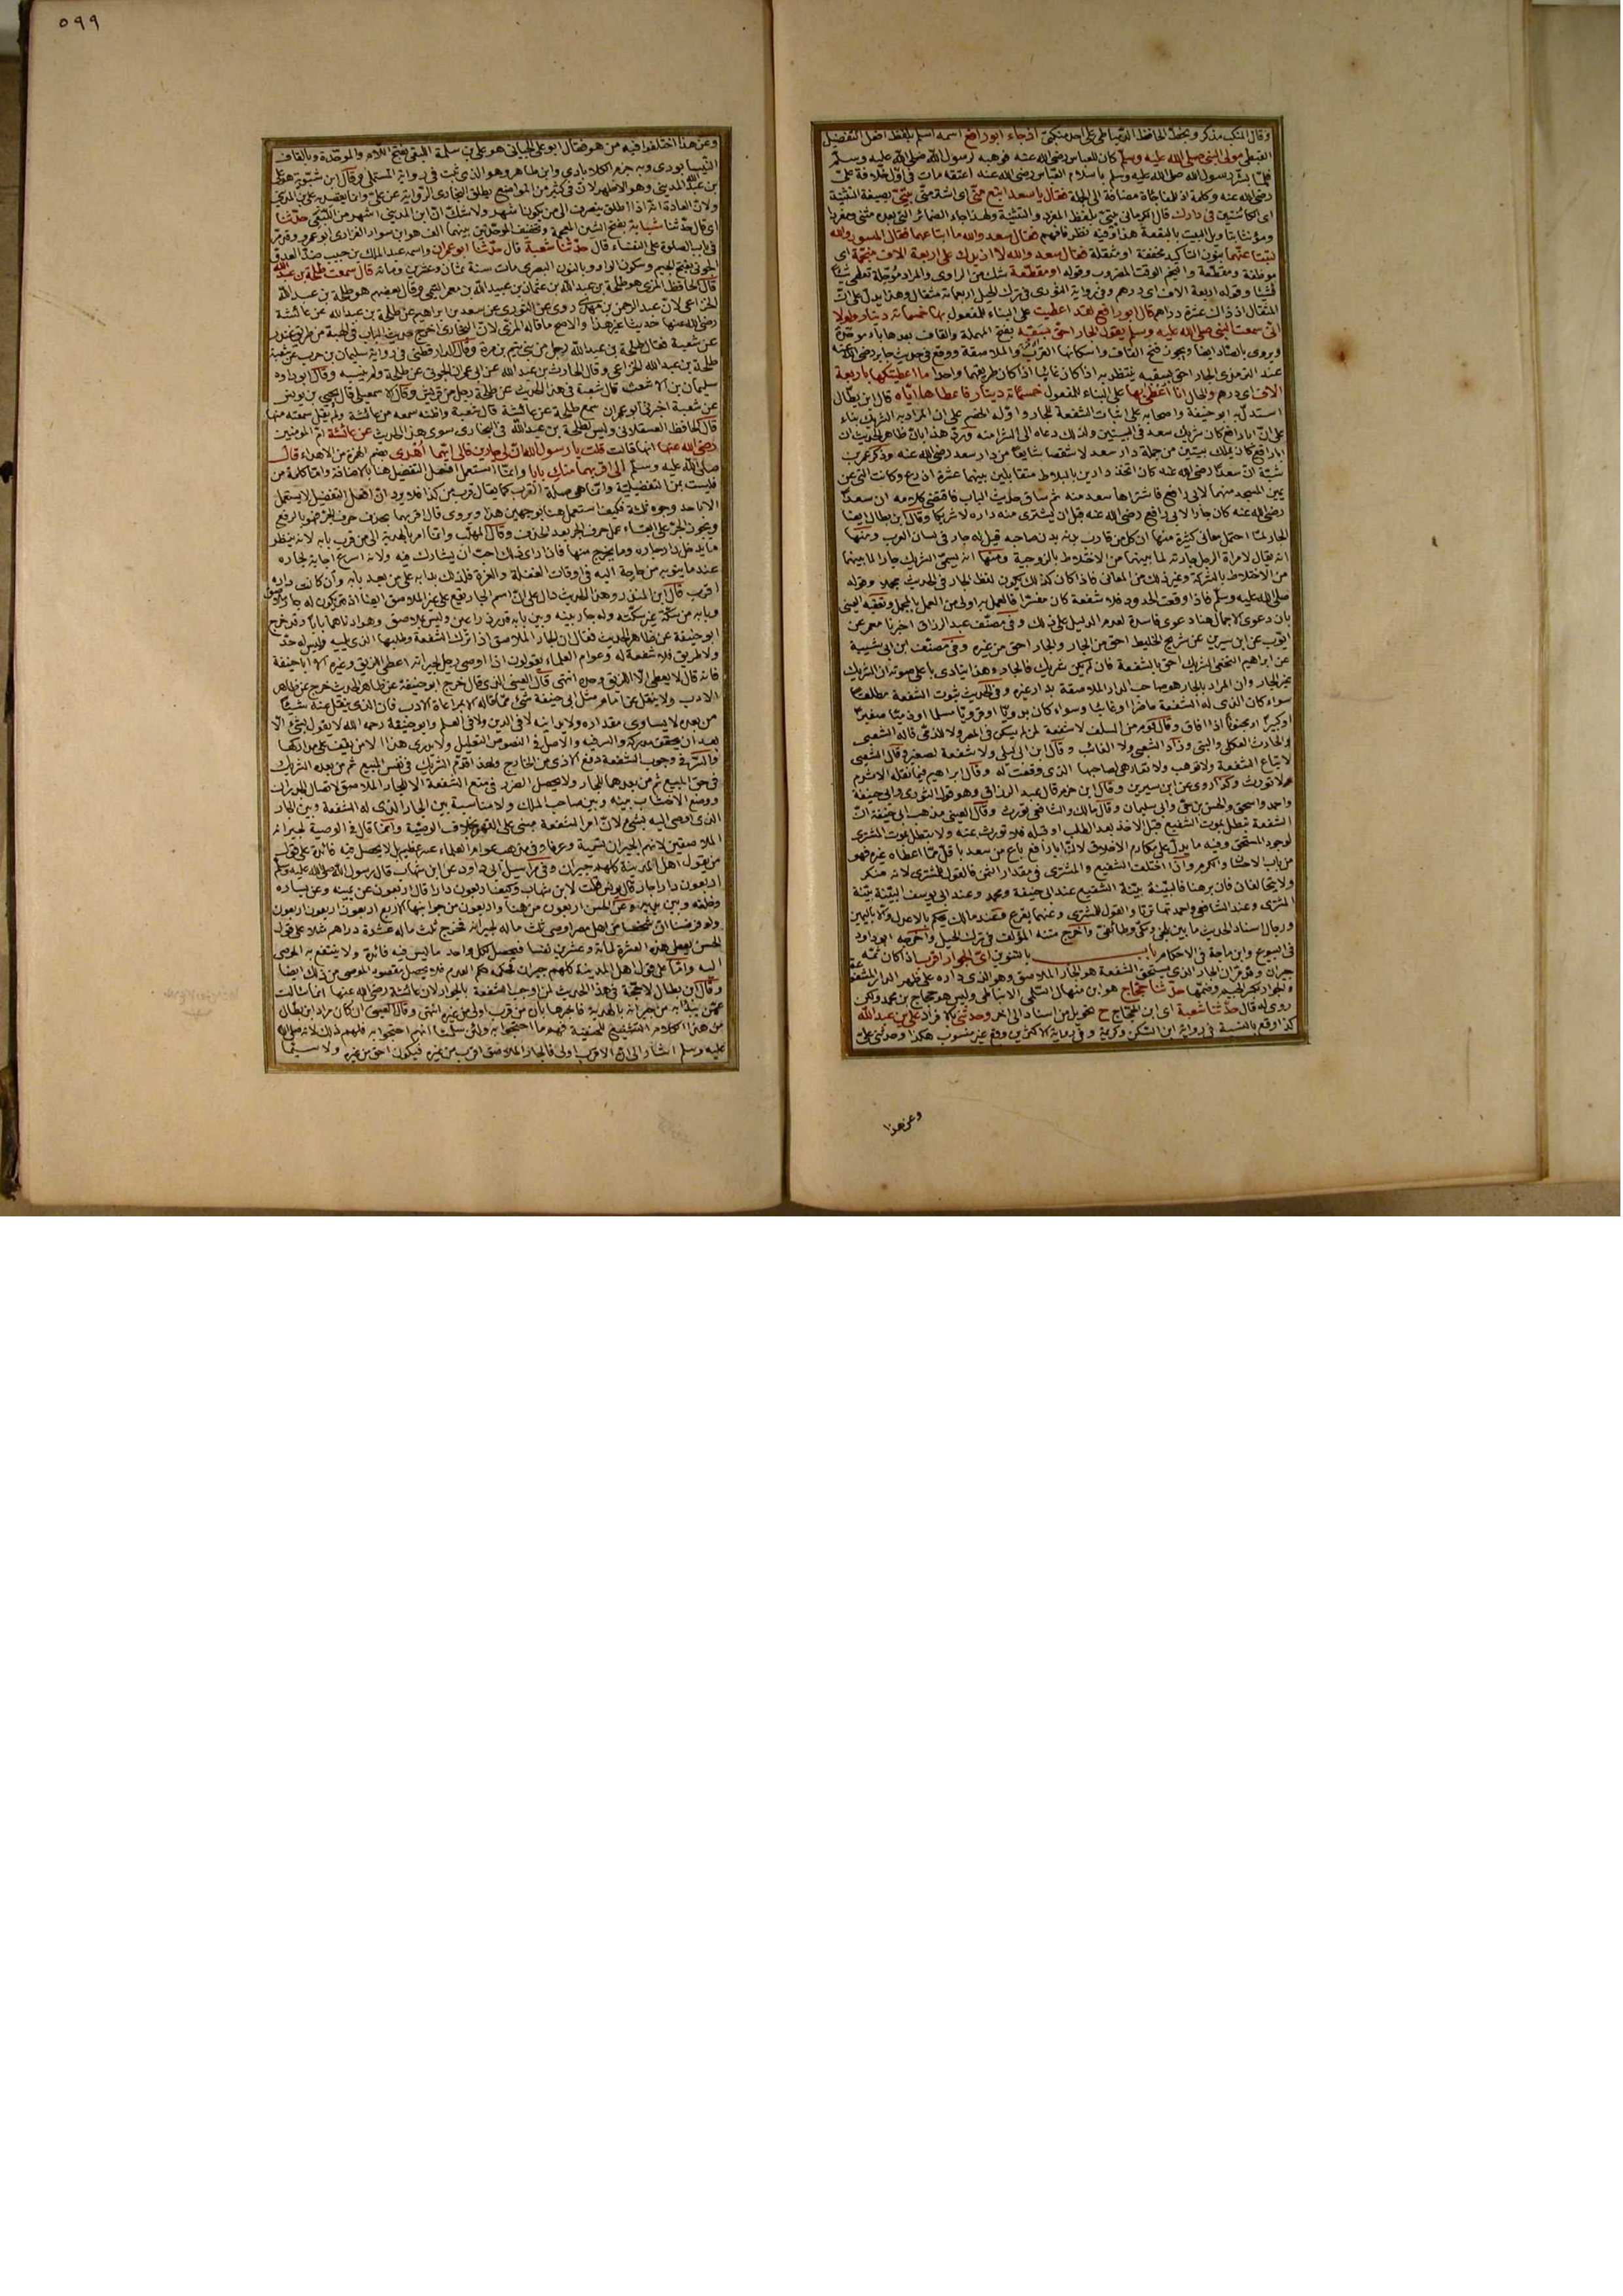 وقال المنكب مذكر وبخط الحافظ الدمياطي على احدى منكبي اذ جاء ابو رافع اسمه اسلم بلفظ افعل التفضيل
القبطي مولى النبي صلى الله عليه وسلم كان للعباس رضي الله عنه فوهبه لرسول الله صلى الله عليه وسلم
فلما بشر رسول الله صلى الله عليه وسلم باسلام العباس رضي الله عنه اعتقه مات في اول خلافة علي
رضي الله عنه وكلمة اذ للمفاجأة مضافة الى الجملة فقال يا سعد ابتع مني اى اشتر مني بيتي بصيغة التثنية
اى الكائنين في دارك قال الكرماني بيتي بلفظ المفرد والتثنية ولهذا جاء الضمائر التي بعده مثنى ومفردا
ومؤنثا بتاويل البيت بالبقعة هذا وفيه نظر فافهم فقال سعد والله ما ابتاعهما فقال المسور والله
لتبتاعنهما بنون التاكيد مخففة او مثقلة فقال سعد والله لا ازيدك على اربعة الاف منجمة اى
موظفة ومقطعة والنجم الوقت المضروب وقوله او مقطعة شك من الراوي والمراد مؤجلة تعطى شيئا
فشيئا وقوله اربعة الاف اى درهم وفي رواية الثوري في ترك الحيل اربعمائة مثقال وهذا يدل على ان
المثقال اذ ذاك عشرة دراهم قال ابو رافع لقد اعطيت على البناء للمفعول بها خمسمائة دينار ولولا
اني سمعت النبي صلى الله عليه وسلم يقول الجار احق بسقبه بفتح المهملة والقاف بعدها باء موحدة
ويروى بالصاد ايضا ويجوز فتح القاف واسكانها القرب والملاصقة ووقع في حديث جابر رضي الله عنه
عند الترمذي الجار احق بسقبه ينتظر به اذا كان غائبا اذا كان طريقهما واحدا ما اعطيتكها باربعة
الاف اى درهم والحال انا اعطى بها على البناء للمفعول خمسمائة دينار فاعطاها اياه قال ابن بطال
استدل به ابو حنيفة واصحابه على اثبات الشفعة للجار واوله الخصم على ان المراد به الشريك بناء
على ان ابا رافع كان شريك سعد في البيتين ولذلك دعاه الى الشرا منه ورد هذا بان ظاهر الحديث ان
ابا رافع كان يملك بيتين من جملة دار سعد لا شقصا شايعا من دار سعد رضي الله عنه وذكر عمر بن
شبة ان سعدا رضي الله عنه كان اتخذ دارين بالبلاط متقابلين بينهما عشرة اذرع وكانت التي عن
يمين المسجد منهما لابي رافع فاشتراها سعد منه ثم ساق حديث الباب فاقتضى كلامه ان سعدا
رضي الله عنه كان جارا لابي رافع رضي الله عنه قبل ان يشترى منه داره لا شريكا وقال ابن بطال ايضا
الجار لما احتمل معاني كثيرة منها ان كل من قارب بدنه بدن صاحبه قيل له جار في لسان العرب ومنها
انه يقال لامراة الرجل جارته لما بينهما من الاختلاط بالزوجية ومنها انه يسمى الشريك جارا لما بينهما
من الاختلاط بالشركة وغير ذلك من المعاني فاذا كان كذلك يكون لفظ الجار في الحديث مجملا وقوله
صلى الله عليه وسلم فاذا وقعت الحدود فلا شفعة كان مفسرا فالعمل به اولى من العمل بالمجمل وتعقبه العيني
بان دعوى الاجمال هنا دعوى فاسدة لعدم الدليل على ذلك وفي مصنف عبد الرزاق اخبرنا معمر عن
ايوب عن ابن سيرين عن شريح الخليط احق من الجار والجار احق من غيره وفي مصنف ابن ابي شيبة
عن ابراهيم النخعي الشريك احق بالشفعة فان لم يكن شريك فالجار وهذا ينادى باعلى صوته ان الشريك
غير الجار وان المراد بالجار هو صاحب الدار الملاصقة بدار غيره وفي الحديث ثبوت الشفعة مطلقا
سواء كان الذى له الشفعة حاضرا او غائبا وسواء كان بدويا او قرويا مسلما او ذميا صغيرا
او كبيرا او مجنونا اذا افاق وقال قوم من السلف لا شفعة لمن لم يسكن في المصر ولا للذمي قاله الشعبي
والحارث العكلي والبتي وزاد الشعبي ولا الغائب وقال ابن ابي ليلى ولا شفعة لصغير وقال الشعبي
لا تباع الشفعة ولا توهب ولا تعار هي لصاحبها الذى وقعت له وقال ابراهيم فيما نقله الاثرم
لا تورث وكذا روى عن ابن سيرين وقال ابن حزم قال عبد الرزاق وهو قول الثوري وابي حنيفة
واحمد واسحق والحسن بن حي وابي سليمان وقال مالك والشافعي تورث وقال العيني مذهب ابي حنيفة ان
الشفعة تبطل بموت الشفيع قبل الاخذ بعد الطلب او قبله فلا تورث عنه ولا تبطل بموت المشترى
لوجود المستحق وفيه ما يدل على مكارم الاخلاق لان ابا رافع باع من سعد باقل مما اعطاه غيره فهو
من باب الاحسان والكرم واذا اختلف الشفيع والمشترى في مقدار الثمن فالقول للمشترى لانه منكر
ولا يتحالفان فان برهنا فالبينة بينة الشفيع عند ابي حنيفة ومحمد وعند ابي يوسف البينة بينة
المشترى وعند الشافعي واحمد تهاترتا والقول للمشترى وعنهما يقرع وعند مالك يحكم بالاعدل والا باليمين
ورجال اسناد الحديث ما بين بلخي ومكي وطائفي واخرج متنه المؤلف في ترك الحيل واخرجه ابو داود
في البيوع وابن ماجة في الاحكام باب بالتنوين اى الجوار اقرب اذا كان ثمة
جيران وقد مر ان الجار الذى يستحق الشفعة هو الجار الملاصق وهو الذى داره على ظهر الدار المشفوعة
والجوار بكسر الجيم وضمها حدثنا حجاج هو ابن منهال السلمي الانماطي وليس هو حجاج بن محمد ولكن
روى له قال حدثنا شعبة اى ابن الحجاج ح تحويل من اسناد الى اخر وحدثني بالافراد علي بن عبد الله
كذا وقع بالنسبة في رواية ابن السكن وكريمة وفي رواية الاكثرين وقع غير منسوب هكذا وحدثني علي
وعن هذا
٥٩٩
وعن هذا اختلفوا فيه من هو فقال ابو علي الجياني هو علي بن سلمة اللبقي بفتح اللام والموحدة وبالقاف
النيسابوري وبه جزم الكلاباذي وابن طاهر وهو الذى ثبت في رواية المستملي وقال ابن شبويه هو علي
بن عبد الله المديني وهو الاظهر لان في كثير من المواضع يطلق البخاري الرواية عن علي وانما يقصد به علي بن المديني
ولان العادة انه اذا اطلق ينصرف الى من يكون اشهر ولا شك ان ابن المديني اشهر من اللبقي حدثنا
اى قال حدثنا شبابة بفتح الشين المعجمة وتخفيف الموحدتين بينهما الف هو ابن سوار الفزاري ابو عمرو وقد مر
في باب الصلوة على النفساء قال حدثنا شعبة قال حدثنا ابو عمران واسمه عبد الملك بن حبيب ضد العدو
الجوني بفتح الجيم وسكون الواو وبالنون البصري مات سنة ثمان وعشرين ومائة قال سمعت طلحة بن عبد الله
قال الحافظ المزي هو طلحة بن عبد الله بن عثمان بن عبيد الله بن معمر التيمي وقال بعضهم هو طلحة بن عبد الله
الخزاعي لان عبد الرحمن بن مهدى روى عن الثوري عن سعد بن ابراهيم عن طلحة بن عبد الله عن عائشة
رضي الله عنها حديثا غير هذا والاصح ما قاله المزي لان البخاري اخرج حديث الباب في الهبة من طريق غندر
عن شعبة فقال طلحة بن عبد الله رجل من بني تيم بن مرة وقال الدارقطني في رواية سليمان بن حرب عن شعبة
طلحة بن عبد الله الخزاعي وقال الحارث بن عبد الله عن ابي عمران الجوني عن طلحة ولم ينسبه وقال ابو داود
سليمان بن الاشعث قال شعبة في هذا الحديث عن طلحة رجل من قريش وقال الاسمعيلي قال يحيى بن يونس
عن شعبة اخبرني ابو عمران سمع طلحة عن عائشة قال شعبة واظنه سمعه من عائشة ولم يقل سمعته منها
قال الحافظ العسقلاني وليس لطلحة بن عبد الله في البخاري سوى هذا الحديث عن عائشة ام المومنين
رضي الله عنها انها قالت قلت يا رسول الله ان لي جارين فالى ايهما اهدى بضم الهمزة من الاهداء قال
صلى الله عليه وسلم الى اقربهما منك بابا وانما استعمل افعل التفضيل هنا بالاضافة واما كلمة من
فليست من التفضيلية وانما هي صلة القرب كما يقال قرب من كذا فلا يرد ان افعل التفضيل لا يستعمل
الا باحد وجوه ثلثة فكيف استعمل هنا بوجهين هذا ويروى قال اقربهما بحذف حرف الجر فهو بالرفع
ويجوز الجر على ابقاء عمل حرف الجر بعد الحذف وقال المهلب وانما امر بالهدية الى من قرب بابه لانه ينظر
ما يدخل دار جاره وما يخرج منها فاذا راى ذلك احب ان يشارك فيه ولانه اسرع اجابة لجاره
عند ما ينوبه من حاجة اليه في اوقات الغفلة والغرة فلذلك بدا به على من بعد بابه وان كانت داره
اقرب قال ابن المنذر وهذا الحديث دال على ان اسم الجار يقع على غير الملاصق ايضا اذ قد يكون له جار ملاصق
وبابه من سكة غير سكته وله جار بينه وبين بابه قدر ذراعين وليس بملاصق وهو ادناهما بابا وقد خرج
ابو حنيفة عن ظاهر الحديث فقال ان الجار الملاصق اذا ترك الشفعة وطلبها الذى يليه وليس له حد
ولا طريق فلا شفعة له وعوام العلماء يقولون اذا اوصى رجل لجيرانه اعطى اللزيق وغيره الا ابا حنيفة
فانه قال لا يعطى الا اللزيق وحده انتهى قال العيني الذى قال خرج ابو حنيفة عن ظاهر الحديث خرج عن ظاهر
الادب ولا ينقل عن امام مثل ابي حنيفة شئ مما قاله الا بمراعاة الادب فان الذى ينقل عنه شيئا
من بعده لا يساوى مقداره ولا يدانيه لا في الدين ولا في العلم وابو حنيفة رحمه الله لا يقول بشئ الا
بعد ان يحقق مدركه والسر فيه والاصل في النصوص التعليل ولا يدرى هذا الا من يقف على مداركها
والسر في وجوب الشفعة دفع الاذى من الخارج ولهذا قدم الشريك في نفس المبيع ثم من بعده الشريك
في حق المبيع ثم من بعدهما للجار ولا يحصل الضرر في منع الشفعة الا للجار الملاصق لاتصال الجدران
ووضع الاخشاب بينه وبين صاحب الملك ولا مناسبة بين الجار الذى له الشفعة وبين الجار
الذى اوصى اليه بشئ لان امر الشفعة مبني على القهر بخلاف الوصية وانما قال في الوصية لجيرانه
الملاصقين لانهم الجيران تسمية وعرفا وفي مذهب عوام العلماء عسر عظيم بل لا يحصل فيه فائدة على قول
من يقول اهل المدينة كلهم جيران وفي مراسيل ابي داود عن ابن شهاب قال رسول الله صلى الله عليه وسلم
اربعون دارا جار قال يونس قلت لابن شهاب وكيف اربعون دارا قال اربعون عن يمينه وعن يساره
وخلفه وبين يديه وعن الحسن اربعون من هنا واربعون من جوانبها الاربع اربعون اربعون اربعون
ولو فرضنا ان شخصا من اهل مصر اوصى بثلث ماله لجيرانه فخرج ثلث ماله عشرة دراهم مثلا على قول
الحسن يعطى هذه العشرة لمائة وعشرين نفسا فيحصل لكل واحد ما ليس فيه فائدة ولا ينتفع به الموصى
اليه واما على قول اهل المدينة كلهم جيران فحكمه حكم العدم فلا يحصل مقصود الموصى من ذلك ايضا
وقال ابن بطال لا حجة في هذا الحديث لمن اوجب الشفعة بالجوار لان عائشة رضي الله عنها انما سالت
عمن يبدا به من جيرانه بالهدية فاخبرها بان من قرب اولى من غيره انتهى وقال العيني ان كان مراد ابن بطال
من هذا الكلام التشنيع للحنفية فهم ما احتجوا به ولئن سلمنا انهم احتجوا به فلهم ذلك لانه صلى الله
عليه وسلم اشار الى ان الاقرب اولى فالجار الملاصق اقرب من غيره فيكون احق من غيره ولا سيما